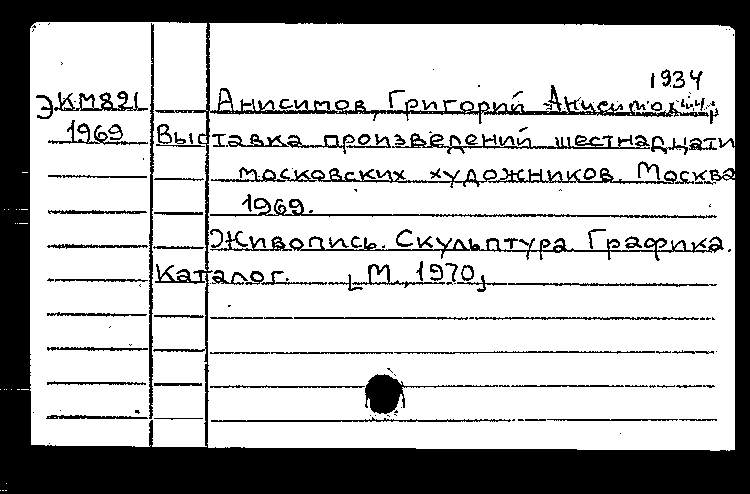 1934
Э.КМ891 Анисимов, Григорий Анисимович
1969 Выставка произведений шестнадцати
московских художников. Москва
1969.
Живопись. Скульптура. Графика.
Каталог. [М., 1970]